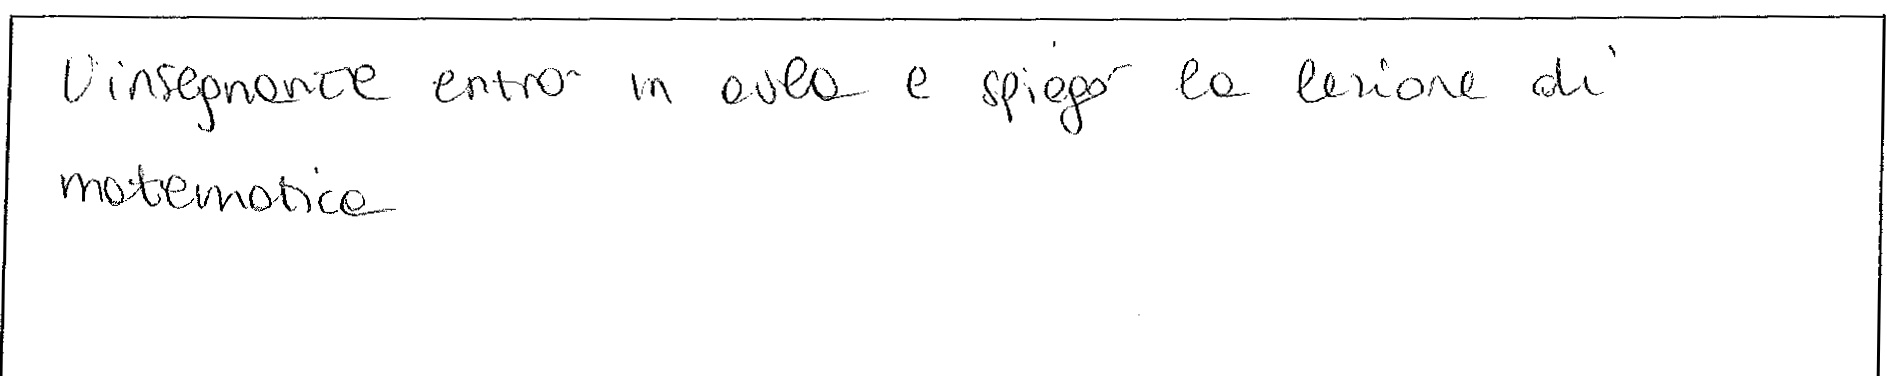 L'insegnante entra in aula e spiega la lezione di
matematica